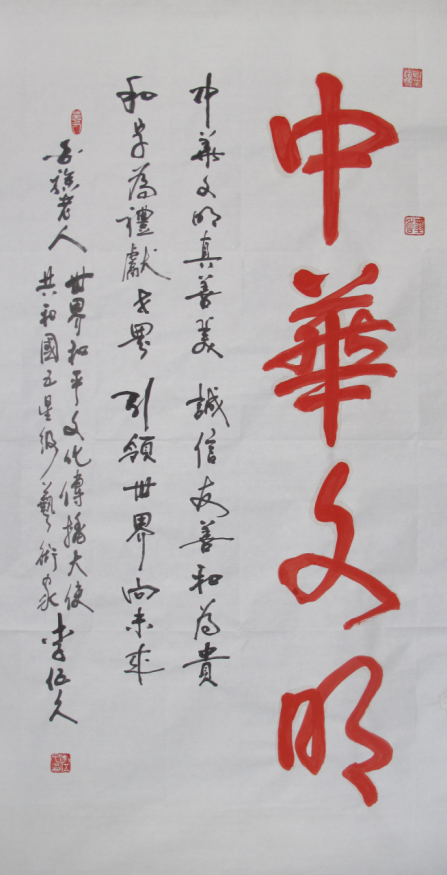 中華文明
中華文明真善美 誠信友善和為貴
和字為禮獻世界 引領世界向未來
老人
世界和平文化傳播大使
共和國五星級藝術家 李久